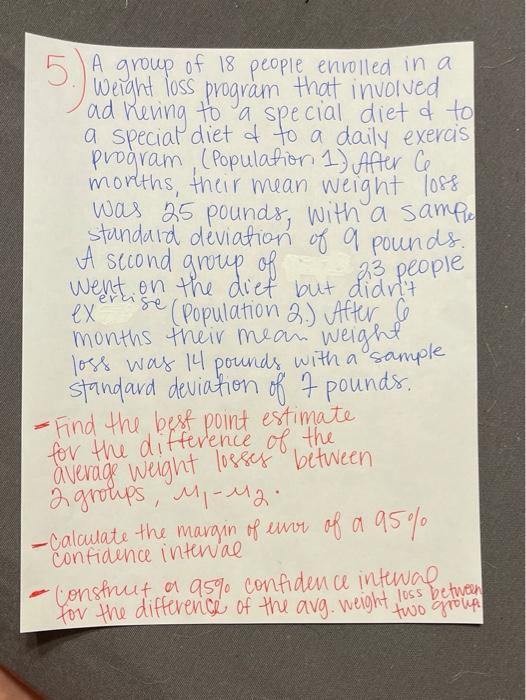 5.) A group of 18 people enrolled in a
weight loss program that involved
adhering to a special diet & to
a special diet & to a daily exercis
program (Population 1) After 6
months, their mean weight loss
was 25 pounds, with a sample
standard deviation of 9 pounds.
A second group of 23 people
went on the diet but didn't
exercise (Population 2.) After 6
months their mean weight
loss was 14 pounds with a sample
standard deviation of 7 pounds.
- Find the best point estimate
for the difference of the
average weight losses between
2 groups, μ1-μ2.
- Calculate the margin of error of a 95%
confidence interval
- Construct a 95% confidence interval
for the difference of the avg. weight loss between
two groups